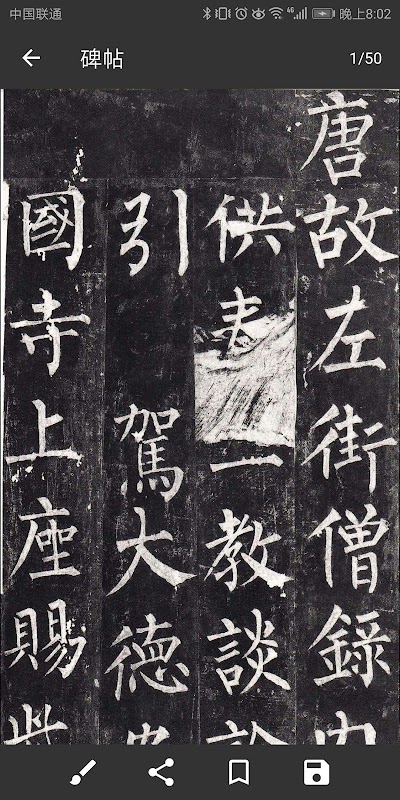 中国联通 4G 晚上8:02
碑帖 1/50
唐故左街僧錄內
供 一教談
引駕大德
國寺上座賜紫